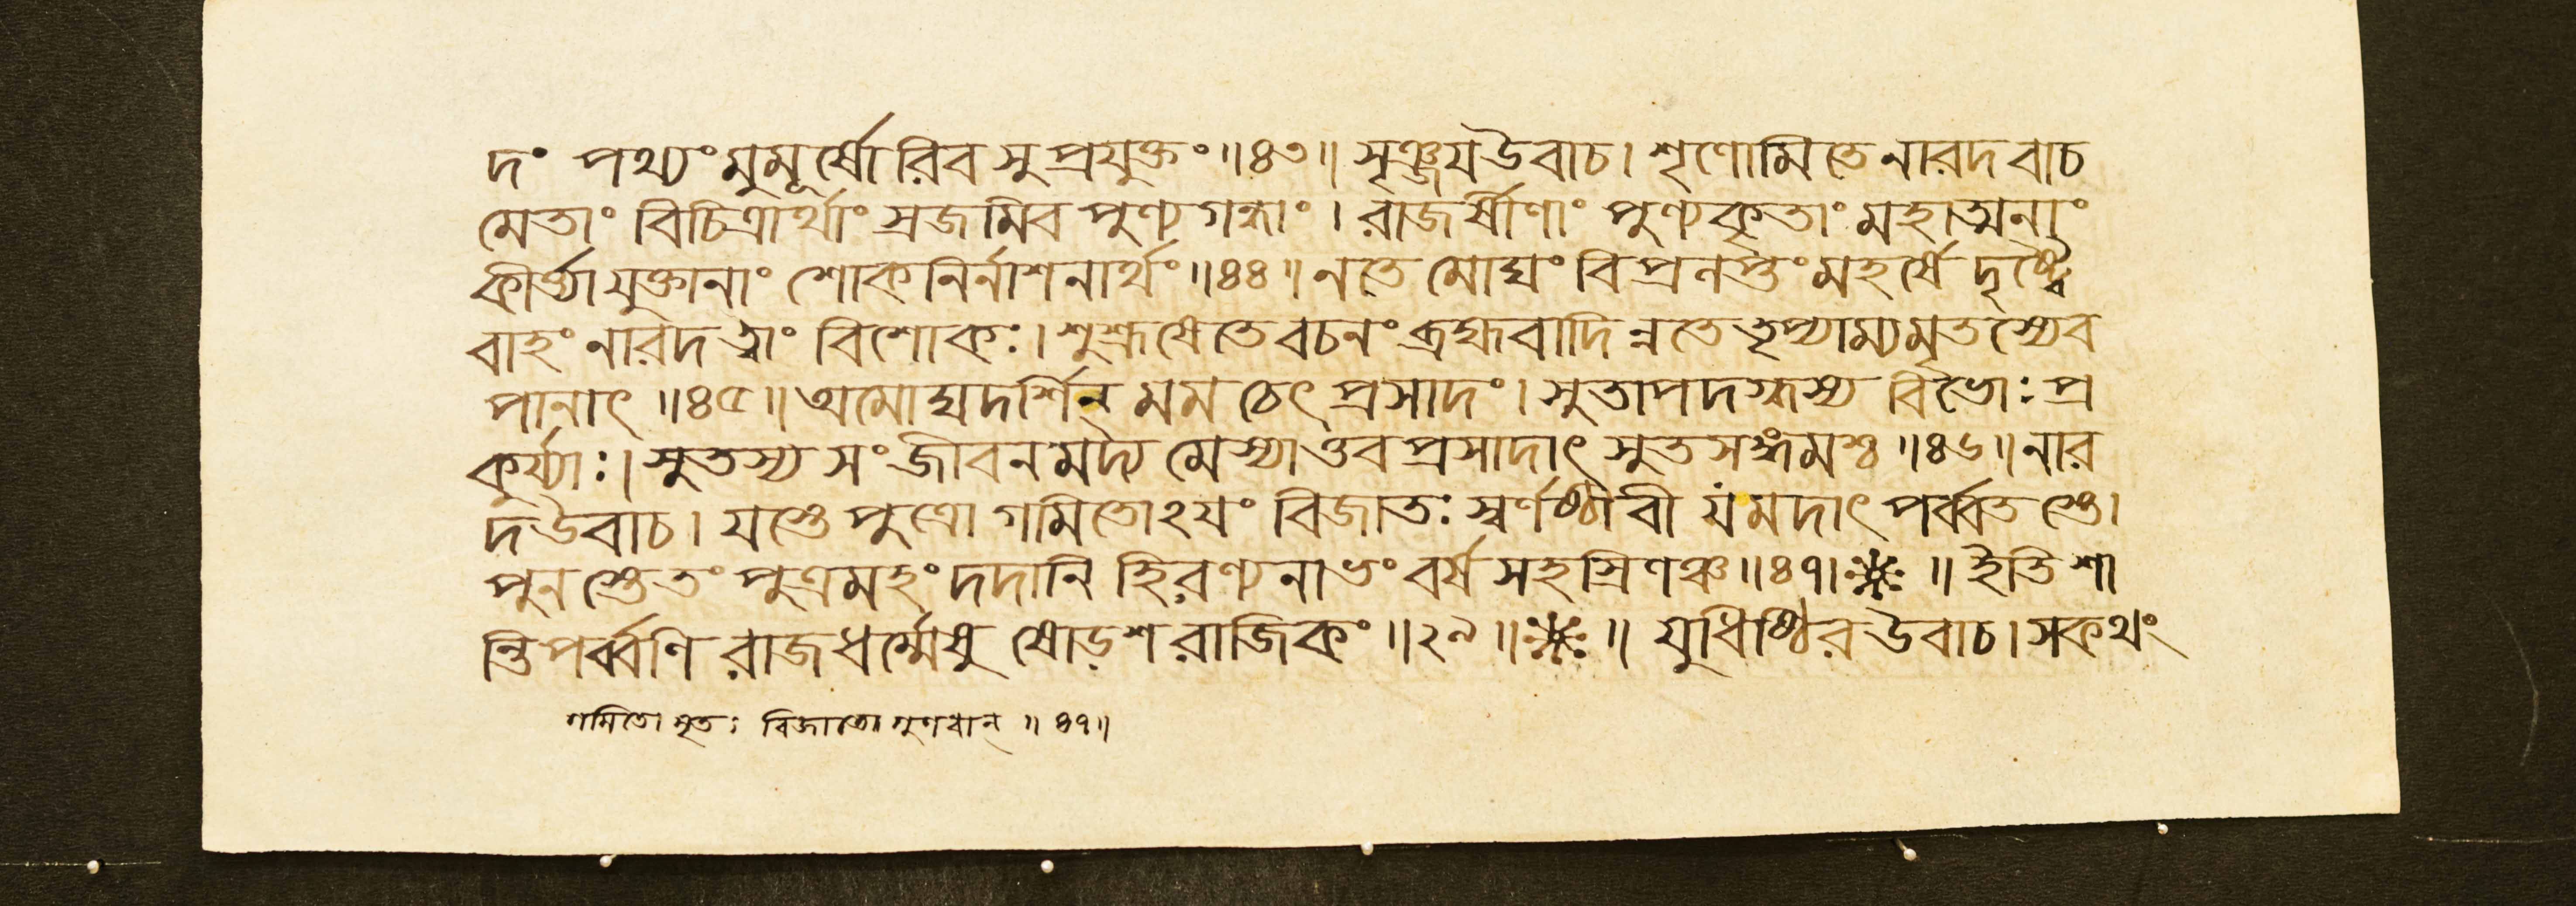 দং পথ্যং মুমূর্ষোরিব সুপ্রযুক্তং ॥৪৩॥ সৃঞ্জয উবাচ। শৃণোমি তে নারদ বাচ
মেতাং বিচিত্রার্থাং স্রজমিব পুণ্যগন্ধাং । রাজর্ষীণাং পুণ্যকৃতাং মহাত্মনাং
কীর্ত্ত্যা যুক্তানাং শোকনির্নাশনার্থং ॥৪৪॥ ন তে মোঘং বিপ্রলপ্তং মহর্ষে দৃষ্ট্বৈ
বাহং নারদ ত্বাং বিশোকঃ। শুশ্রূষে তে বচনং ব্রহ্মবাদিন্ন তে তৃপ্যাম্যমৃতস্যেব
পানাৎ ॥৪৫॥ অমোঘদর্শিন্ মম চেৎ প্রসাদং। সুতাপদগ্ধস্য বিভোঃ প্র
কুর্য্যাঃ। সুতস্য সংজীবনমদ্য মে স্যাত্তব প্রসাদাৎ সুতসঙ্গমশ্চ ॥৪৬॥ নার
দ উবাচ। যস্তে পুত্রো গমিতোঽযং বিজাতঃ স্বর্ণষ্ঠীবী যমদাৎ পর্ব্বতস্তে।
পুনস্তে তং পুত্রমহং দদানি হিরণ্যনাভং বর্ষসহস্রিণঞ্চ ॥৪৭। ॥ ইতি শা
ন্তিপর্ব্বণি রাজধর্ম্মেষু ষোড়শরাজিকং ॥২৯॥ ॥ যুধিষ্ঠির উবাচ। স কথং
গমিতো মৃতঃ বিজাতো গুণবান্ ॥ ৪৭॥